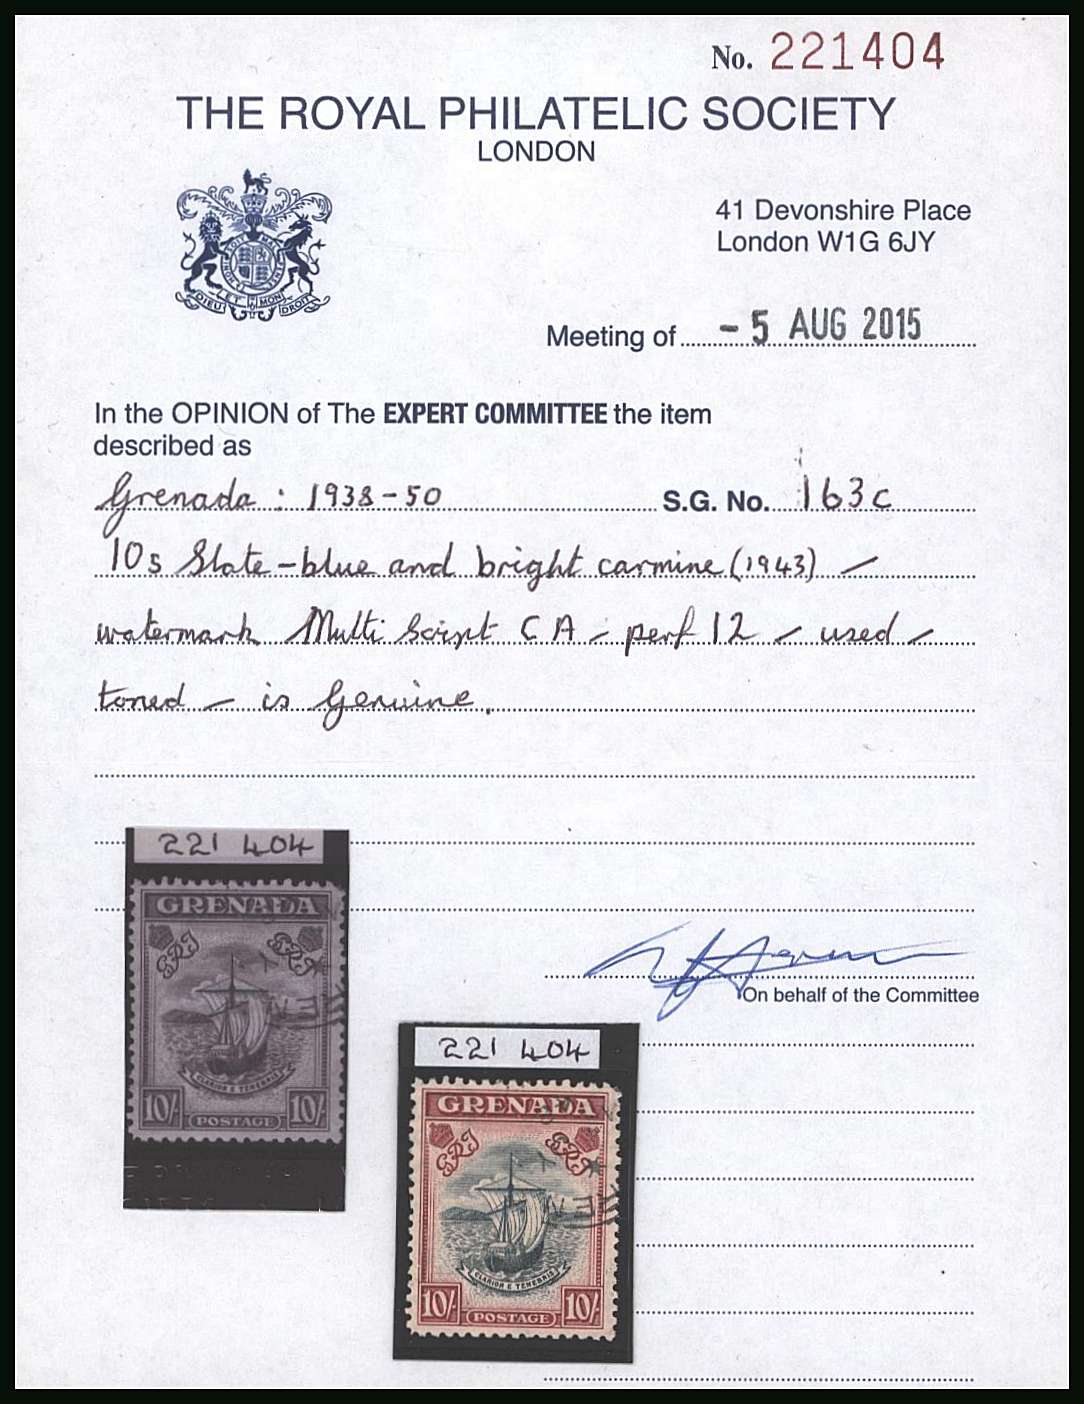 No. 221404
THE ROYAL PHILATELIC SOCIETY
LONDON
41 Devonshire Place
London W1G 6JY
DIEU ET MON DROIT
Meeting of - 5 AUG 2015
In the OPINION of The EXPERT COMMITTEE the item
described as
Grenada : 1938-50 S.G. No. 163c
10s Slate-blue and bright carmine (1943) –
watermark Multi Script CA – perf 12 – used –
toned – is Genuine.
221 404
GRENADA
GRI GRI
CLARIOR E TENEBRIS
10/- POSTAGE 10/-
On behalf of the Committee
221 404
GRENADA
GRI GRI
CLARIOR E TENEBRIS
10/- POSTAGE 10/-